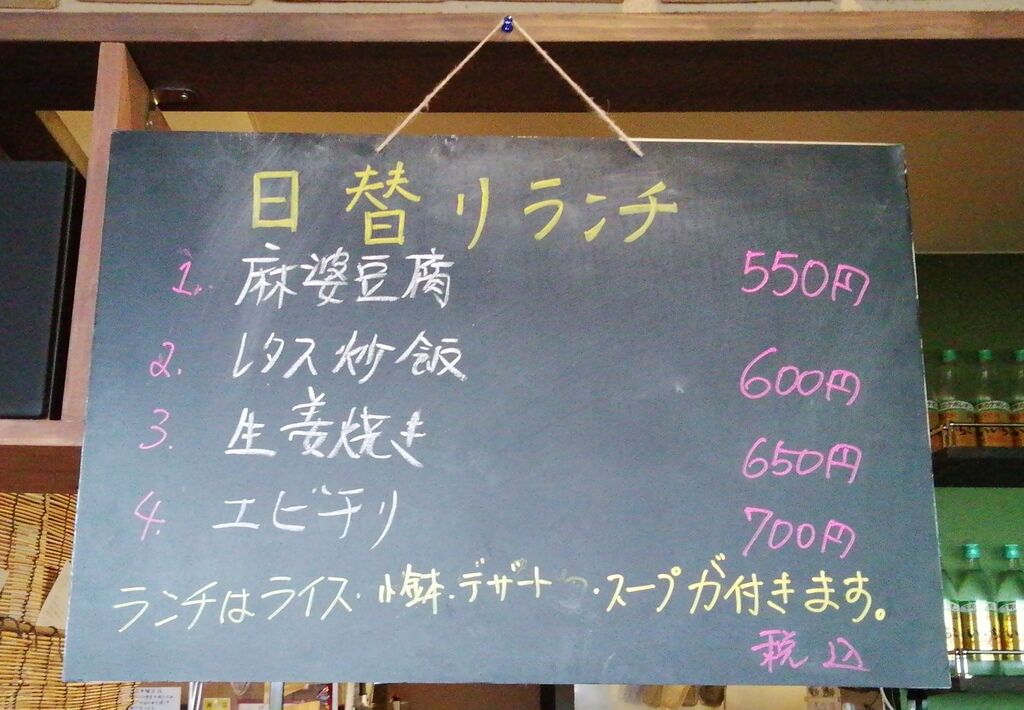 日替リランチ
1. 麻婆豆腐 550円
2. レタス炒飯 600円
3. 生姜焼き 650円
4. エビチリ 700円
ランチはライス・小鉢・デザート・スープが付きます。
税込